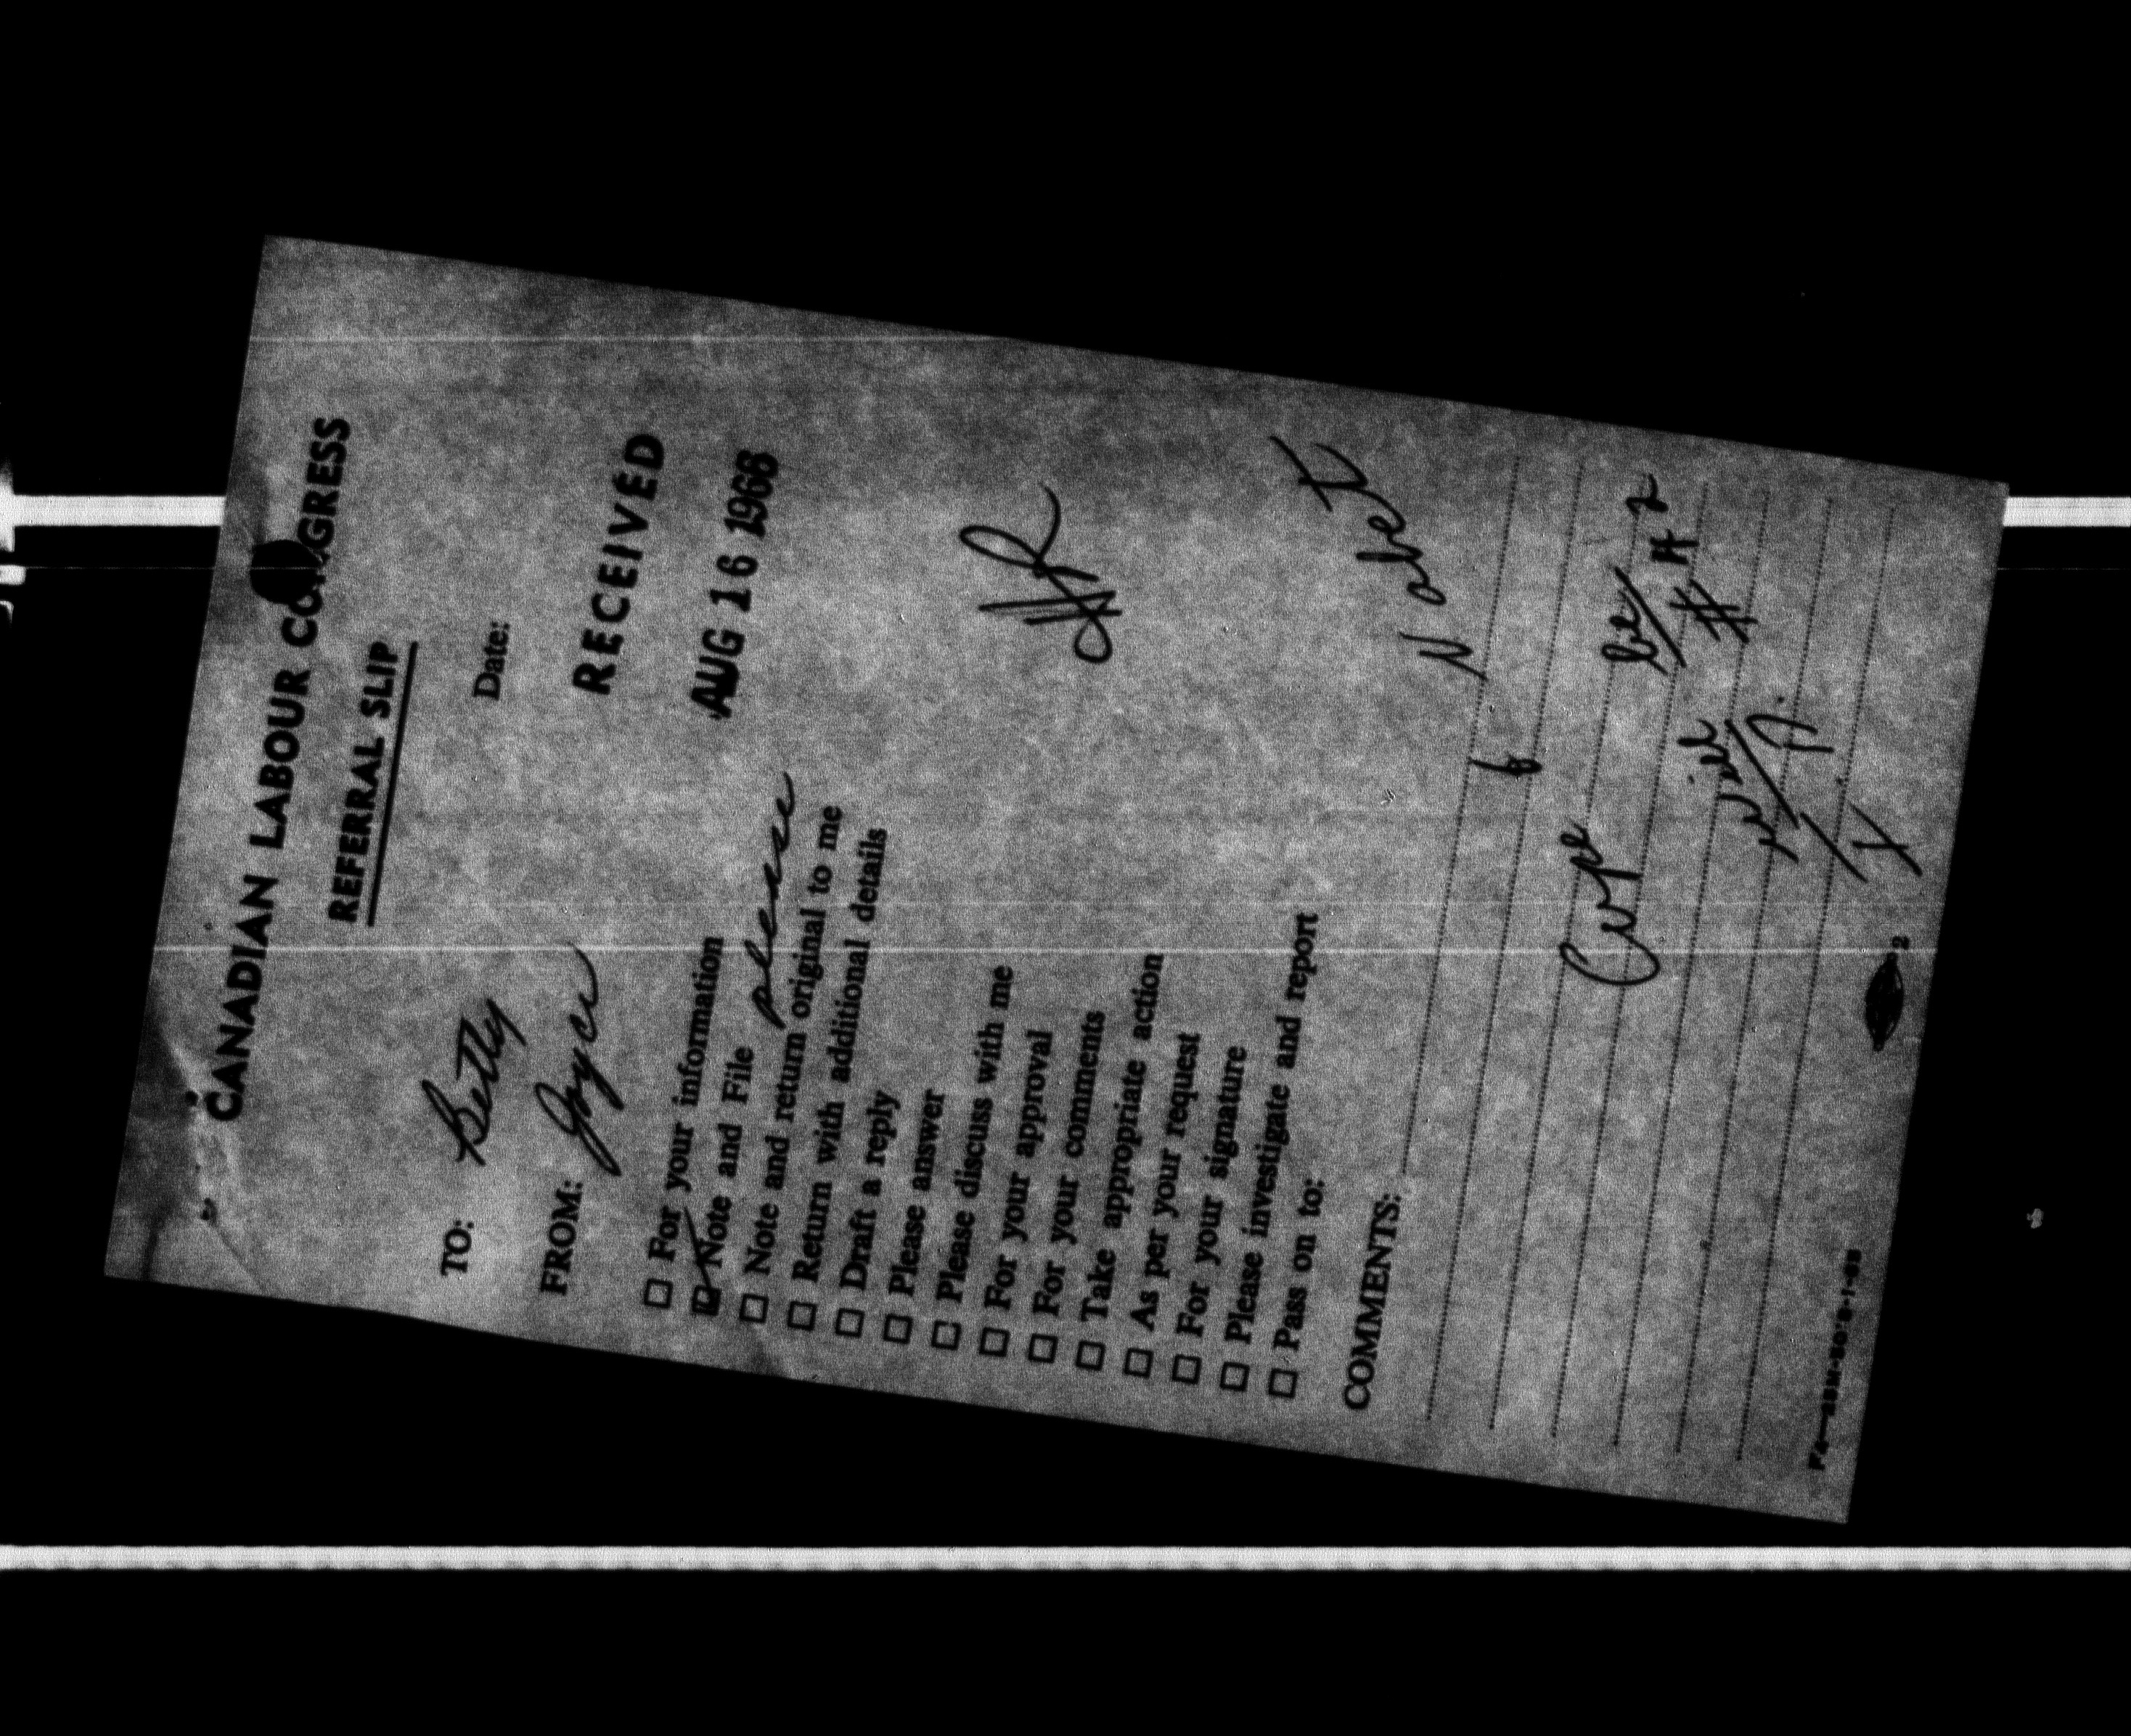 CANADIAN LABOUR CONGRESS
REFERRAL SLIP
Date:
TO: Betty
FROM: Joyce
RECEIVED
AUG 16 1968
☐ For your information
☑ Note and File please
☐ Note and return original to me
☐ Return with additional details
☐ Draft a reply
☐ Please answer
☐ Please discuss with me
☐ For your approval
☐ For your comments
☐ Take appropriate action
☐ As per your request
☐ For your signature
☐ Please investigate and report
☐ Pass on to:
COMMENTS:
Cupe
will be